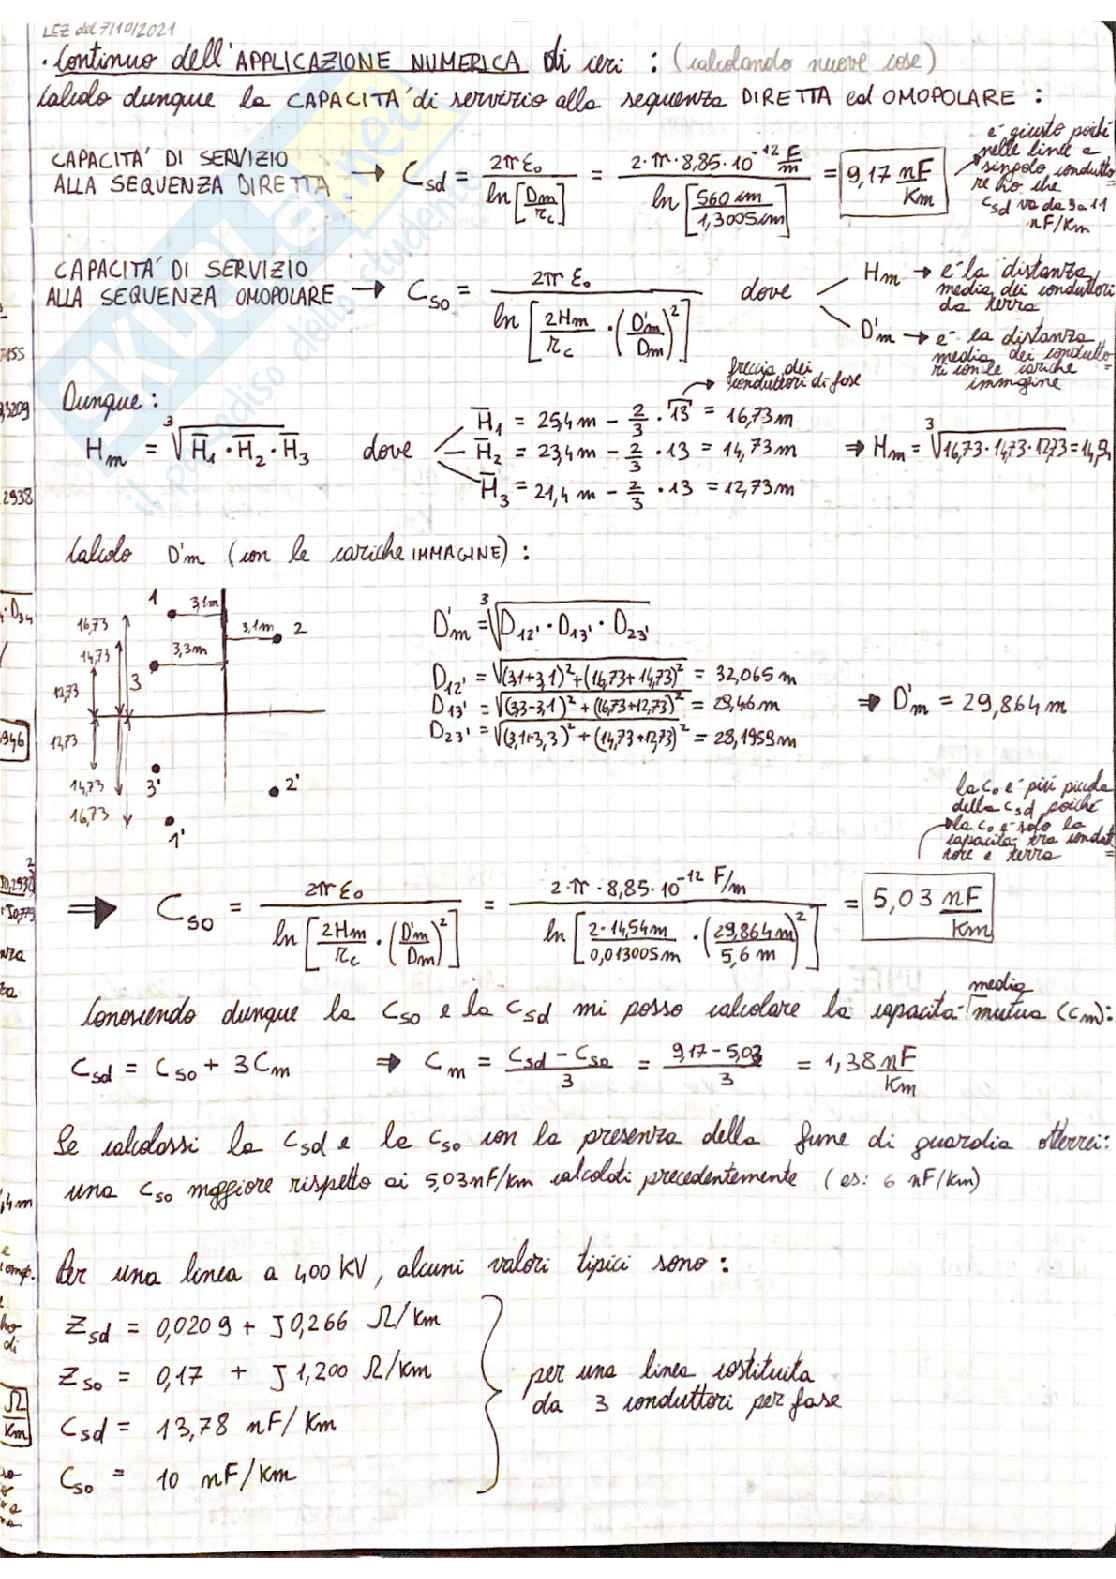 LEZ del 7/10/2021
· Continuo dell'APPLICAZIONE NUMERICA di ieri : (calcolando nuove cose)
Calcolo dunque la CAPACITA' di servizio alla sequenza DIRETTA ed OMOPOLARE :
CAPACITA' DI SERVIZIO
ALLA SEQUENZA DIRETTA → Csd = 2π ε₀ / ln[Dm/rc] = 2·π·8,85·10⁻¹² F/m / ln[560 cm/1,3005 cm] = 9,17 nF/Km
è giusto poiché
nelle linee a
singolo condutto
re ho che
Csd va da 9 a 11
nF/Km
CAPACITA' DI SERVIZIO
ALLA SEQUENZA OMOPOLARE → Cso = 2π ε₀ / ln[2Hm/rc · (D'm/Dm)²] dove
Hm → è la distanza
media dei conduttori
da terra
D'm → è la distanza
media dei condutto
ri con le cariche =
immagine
Dunque :
freccia dei
conduttori di fase
Hm = ³√(H̄₁ · H̄₂ · H̄₃) dove
H̄₁ = 25,4 m − 2/3 · 13 = 16,73 m
H̄₂ = 23,4 m − 2/3 · 13 = 14,73 m
H̄₃ = 21,4 m − 2/3 · 13 = 12,73 m
⇒ Hm = ³√(16,73·14,73·12,73) = 14,54
Calcolo D'm (con le cariche IMMAGINE) :
1 3,1m
3,1m 2
3,3m
3
16,73
14,73
12,73
12,73
14,73
16,73
3'
2'
1'
D'm = ³√(D12' · D13' · D23')
D12' = √((3,1+3,1)² + (16,73+14,73)²) = 32,065 m
D13' = √((3,3−3,1)² + (16,73+12,73)²) = 29,46 m
D23' = √((3,1+3,3)² + (14,73+12,73)²) = 28,1959 m
⇒ D'm = 29,864 m
la C₀ è più piccola
della Csd poiché
la C₀ è solo la
capacità tra condut
tore e terra =
⇒ Cso = 2π ε₀ / ln[2Hm/rc · (D'm/Dm)²] = 2·π·8,85·10⁻¹² F/m / ln[2·14,54m/0,013005m · (29,864m/5,6 m)²] = 5,03 nF/Km
Conoscendo dunque la Cso e la Csd mi posso calcolare la capacità media mutua (Cm):
Csd = Cso + 3Cm ⇒ Cm = Csd − Cso / 3 = 9,17 − 5,03 / 3 = 1,38 nF/Km
Se calcolassi la Csd e la Cso con la presenza della fune di guardia otterrei:
una Cso maggiore rispetto ai 5,03 nF/Km calcolati precedentemente (es: 6 nF/Km)
Per una linea a 400 KV, alcuni valori tipici sono :
Zsd = 0,0209 + J 0,266 Ω/Km
Zso = 0,17 + J 1,200 Ω/Km
Csd = 13,78 nF/Km
Cso = 10 nF/Km
per una linea costituita
da 3 conduttori per fase
SKUOLA.net
il paradiso dello studente